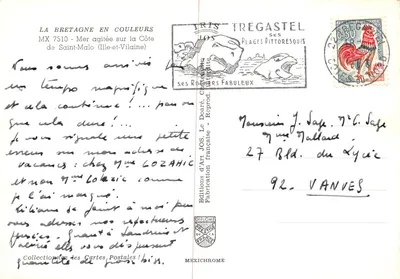 LA BRETAGNE EN COULEURS
MX 7510 - Mer agitée sur la Côte
de Saint-Malo (Ille-et-Vilaine)
Nous sommes arrivés par
un temps magnifique
et ela continue !... pourvu
que cela dure !...
Je vous signale une petite
erreur sur mon adresse de
vacances : chez Mme GOZAHIC
et non Mme
je l'ai marqué.
Liliane se joint à moi pour
vous adresser nos respectueuses
pensées. Quant à Sandrine et
Valérie elles vous déposent
quantité de gros bisous.
Collectionnez les Cartes Postales !
Editions d'Art JOS Le Doaré, Châteaulin
Fabrication française - Reprod. interdite
MEXICHROME
TREGASTEL
SES
PLAGES PITTORESQUES
SES ROCHERS FABULEUX
Monsieur J. Sage, Me C. Sage
Mme Mallard
27 Bld. du Lycée
92. VANVES